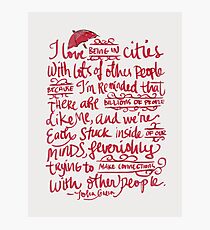 I love BEING IN cities
With lots of other people
BECAUSE I'm Reminded that
there are BILLIONS OF PEOPLE
like me, and we're
Each stuck inside OF OUR
MINDS, feverishly
trying to MAKE CONNECTIONS
with other people.
- Julia Green